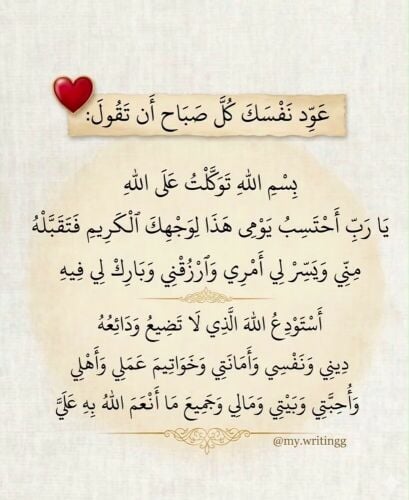 عَوِّد نَفْسَكَ كُلَّ صَبَاح أَن تَقُولَ:
بِسْمِ اللهِ تَوَكَّلْتُ عَلَى اللهِ
يَا رَبِّ أَحْتَسِبُ يَوْمِى هَذَا لِوَجْهِكَ ٱلْكَرِيمِ فَتَقَبَّلْهُ
مِنِّي وَيَسِّرْ لِي أَمْرِي وَٱرْزُقْنِي وَبَارِكْ لِي فِيهِ
أَسْتَوْدِعُ اللهَ الَّذِي لَا تَضِيعُ وَدَائِعُهُ
دِينِي وَنَفْسِي وَأَمَانَتِي وَخَوَاتِيمَ عَمَلِي وَأَهْلِي
وَأَحِبَّتِي وَبَيْتِي وَمَالِي وَجَمِيعَ مَا أَنْعَمَ اللهُ بِهِ عَلَيَّ
@my.writingg